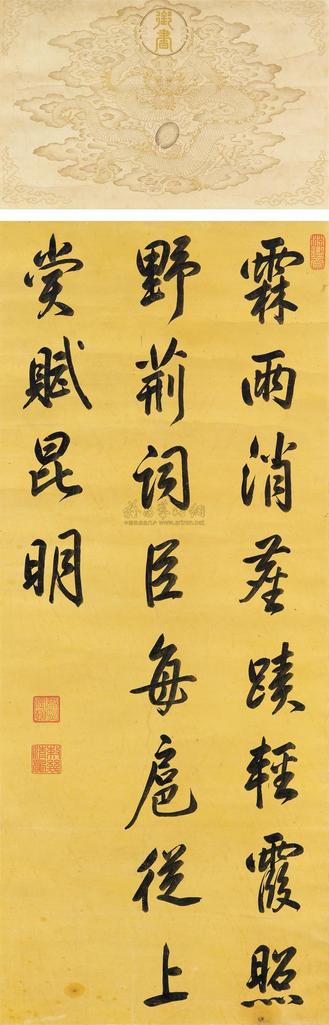 御書
霖雨消塵蹟輕霞照
野荊詞臣每扈從上
賞賦昆明
www.artron.net